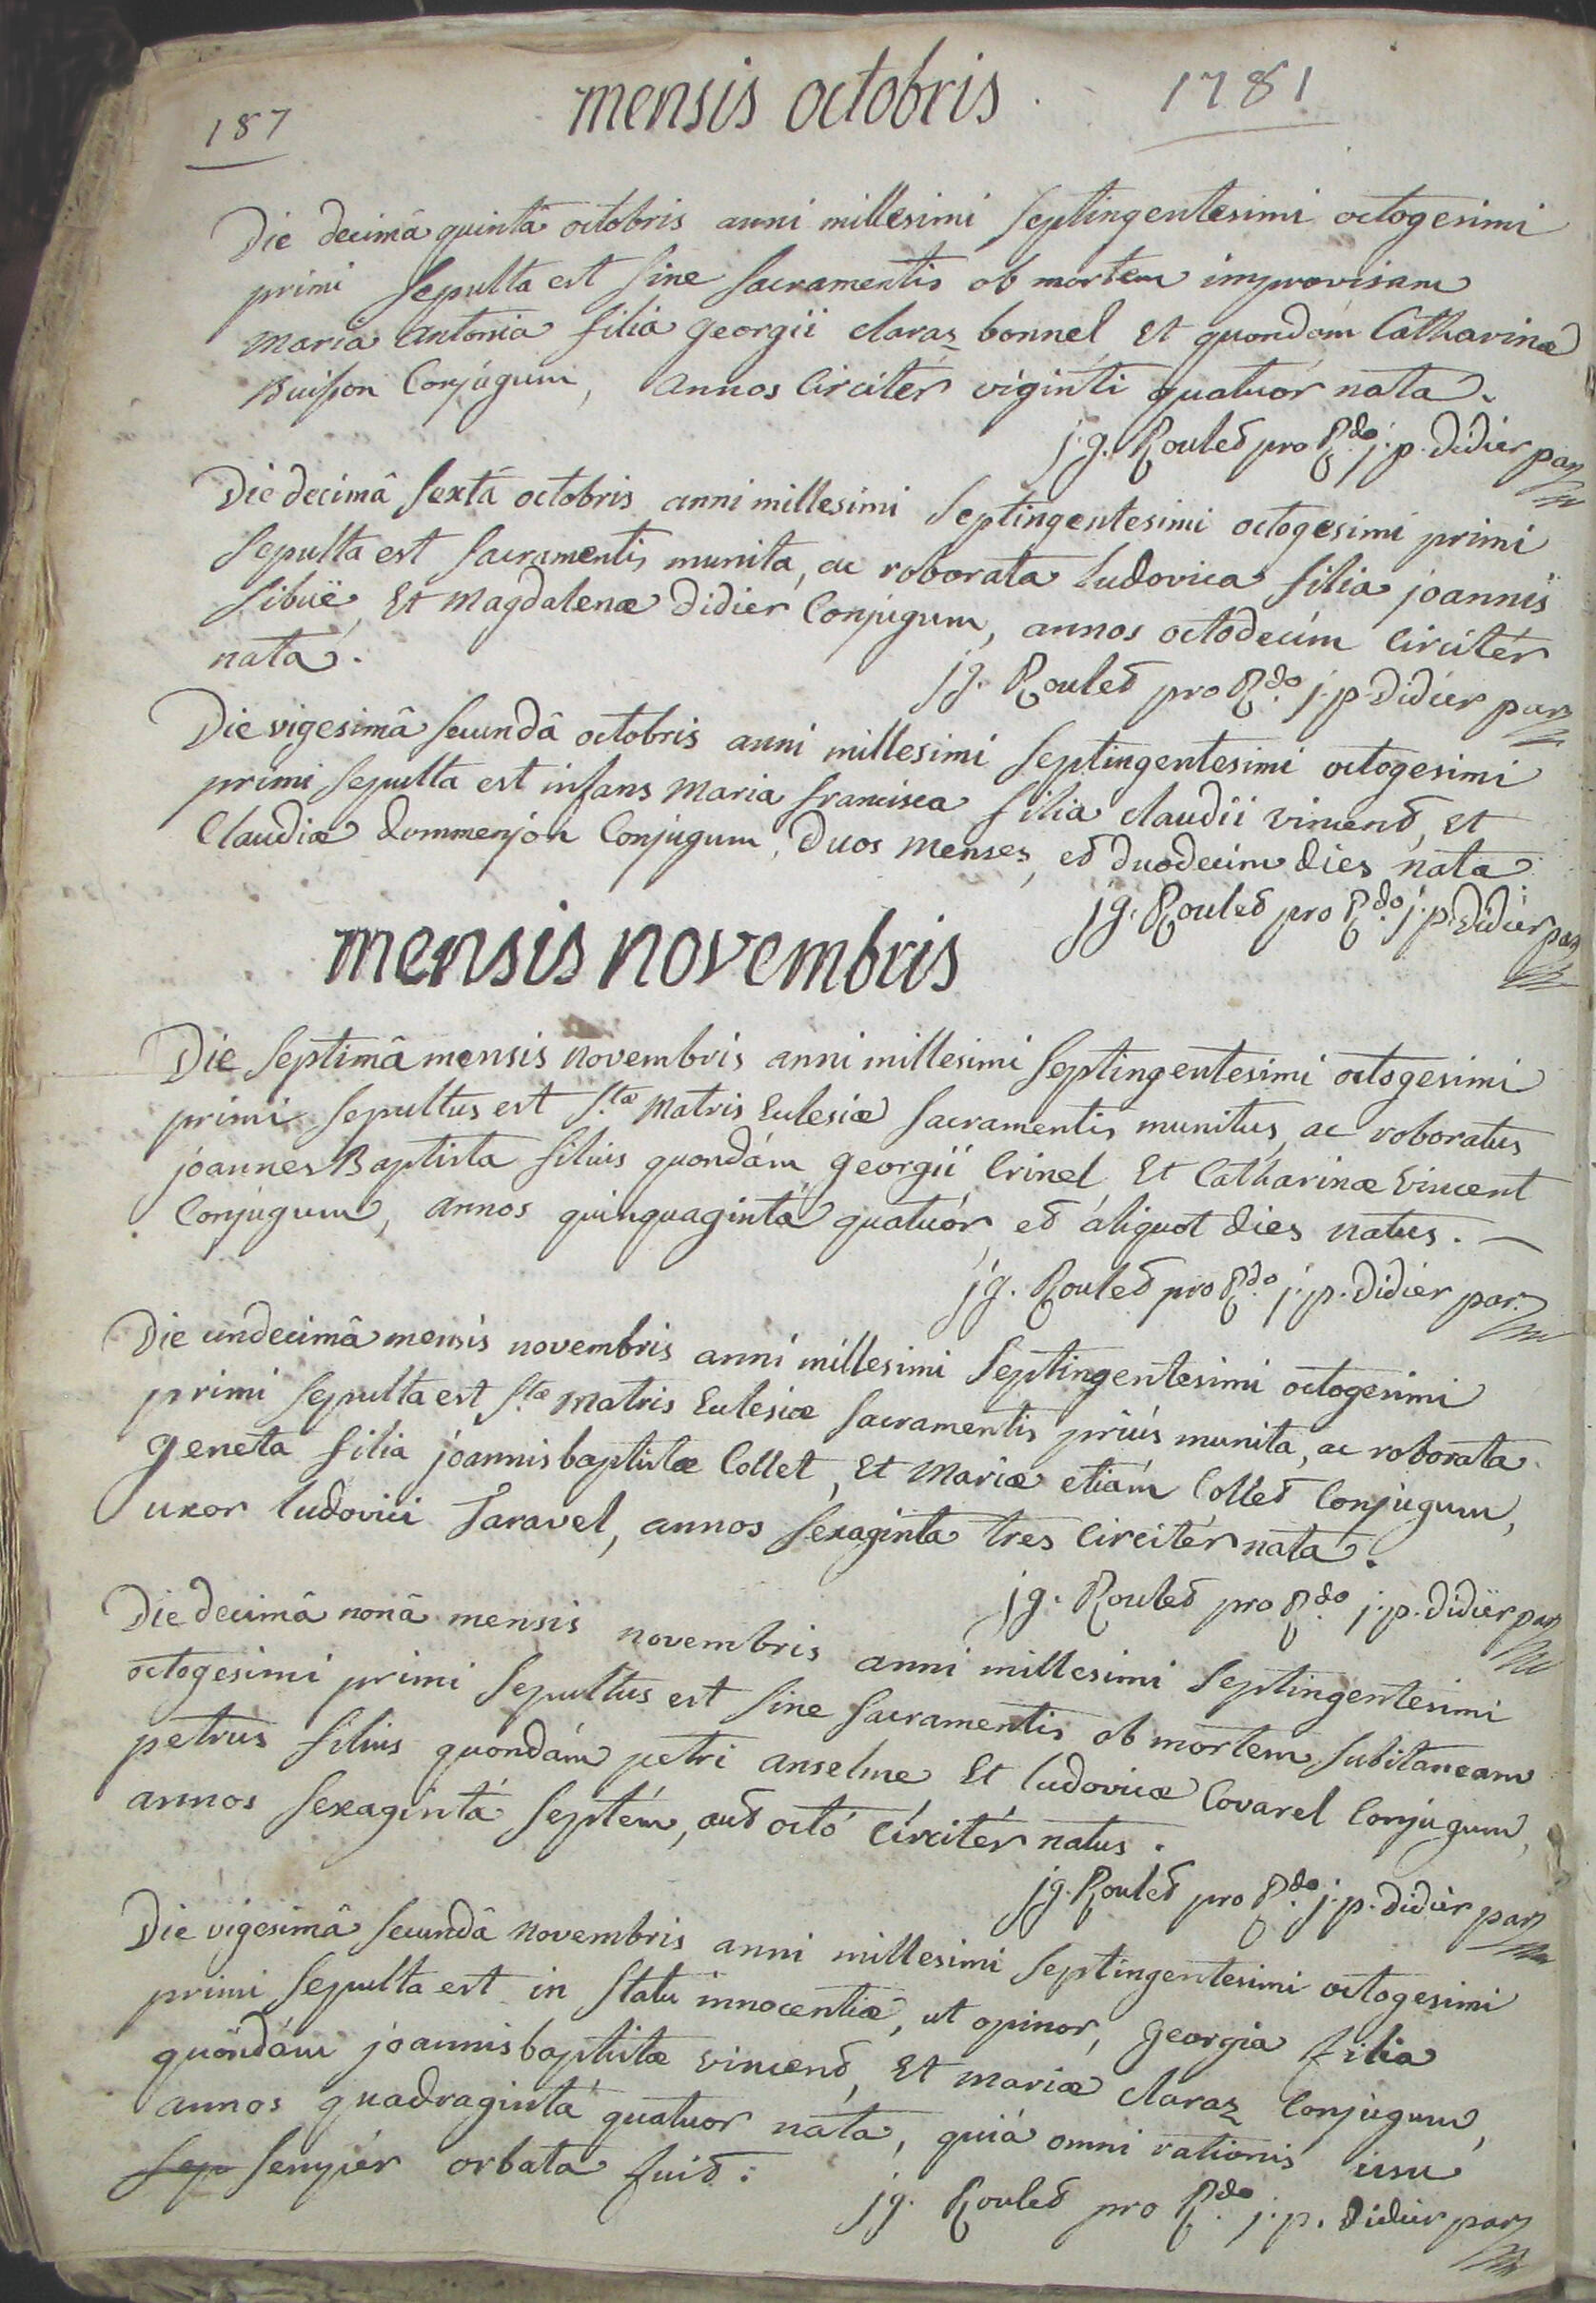 187
mensis octobris 1781
Die decimâ quintâ octobris anni millesimi septingentesimi octogesimi
primi sepulta est sine sacramentis ob mortem improvisam
maria antonia filia georgii claraz bonnel et quondám Catharinæ
Buisson Conjúgum, annos Circitér vigínti quatuór nata.
j.g. Roulet pro R.do j.p. didier par
Die decimâ sextâ octobris anni millesimi septingentesimi octogesimi primi
sepulta est sacramentis munita, ac roborata ludovica filia joannis
sibuë, et magdalenæ didier Conjugum, annos octodecím Circitér
nata.
jg. Roulet pro R.do j.p. didier par
Die vigesimâ secundâ octobris anni millesimi septingentesimi octogesimi
primi, sepulta est infans maria francisca filia claudii vincent, et
Claudiæ dommenjon Conjugum, duos menses, et duodecim dies nata
jg. Roulet pro R.do j.p. didier par
mensis novembris
Die septimâ mensis novembris anni millesimi septingentesimi octogesimi
primi sepultus est s.tæ matris Eclesiæ sacramentis munitus, ac roboratus
joannes Baptista filius quondám georgii Crinel, et Catharinæ vincent
Conjugum, annos quinquagintá quatuór, et áliquot dies natus.
jg. Roulet pro R.do j.p. didier par.
Die undecimâ mensis novembris anni millesimi septingentesimi octogesimi
primi sepulta est s.tæ matris Eclesiæ sacramentis priús munita, ac roborata
geneta filia joannisbaptistæ Collet, et mariæ etiám Collet Conjugum,
uxor ludovici Taravel, annos sexaginta tres Circitér nata.
jg. Roulet pro R.do j.p. didier par
Die decimâ nonâ mensis novembris anni millesimi septingentesimi
octogesimi primi sepultus est sine sacramentis ob mortem subitaneam
petrus filius quondám petri anselme, et ludovicæ Covarel Conjugum,
annos sexagintá septém, aut octó Círcitér natus.
jg. Roulet pro R.do j.p. didier par
Die vigesimâ secundâ novembris anni millesimi septingentesimi octogesimi
primi sepulta est in statu innocentiæ, ut opinor, georgia filia
quondám joannisbaptistæ vincent, et mariæ claraz Conjugum,
annos quadragintá quatuor nata, quiá omni rationis usu
sep sempér orbata fuit.
jg. Roulet pro R.do j.p. didier par